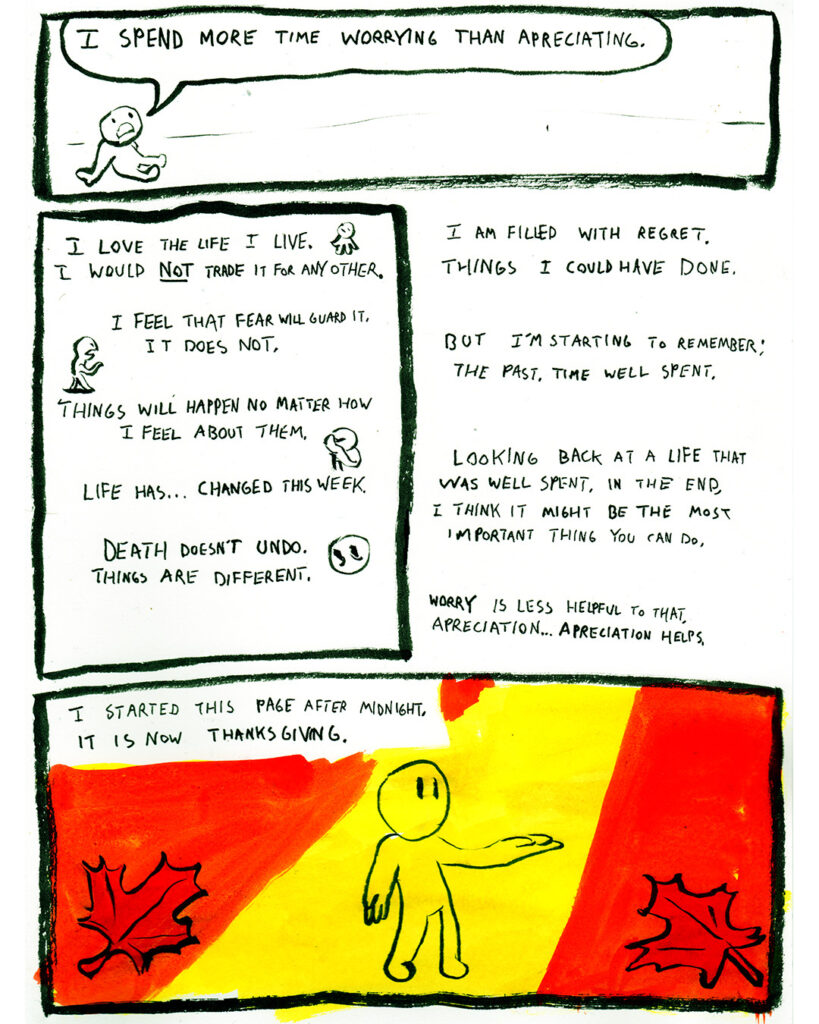 I SPEND MORE TIME WORRYING THAN APRECIATING.
I LOVE THE LIFE I LIVE.
I WOULD NOT TRADE IT FOR ANY OTHER.
I FEEL THAT FEAR WILL GUARD IT.
IT DOES NOT.
THINGS WILL HAPPEN NO MATTER HOW
I FEEL ABOUT THEM.
LIFE HAS... CHANGED THIS WEEK.
DEATH DOESN'T UNDO.
THINGS ARE DIFFERENT.
I AM FILLED WITH REGRET.
THINGS I COULD HAVE DONE.
BUT I'M STARTING TO REMEMBER:
THE PAST. TIME WELL SPENT.
LOOKING BACK AT A LIFE THAT
WAS WELL SPENT, IN THE END,
I THINK IT MIGHT BE THE MOST
IMPORTANT THING YOU CAN DO.
WORRY IS LESS HELPFUL TO THAT.
APRECIATION... APRECIATION HELPS.
I STARTED THIS PAGE AFTER MIDNIGHT.
IT IS NOW THANKSGIVING.